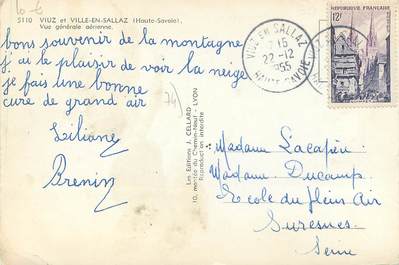 10-6
5110 VIUZ et VILLE-EN-SALLAZ (Haute-Savoie)
Vue générale aérienne.
bons souvenir de la montagne
j'ai le plaisir de voir la neige
je fais une bonne
cure de grand air
(74)
Liliane
Brenin
Les Editions J. CELLARD
10, montée du Chemin-Neuf - LYON
Reproduction interdite
VIUZ EN SALLAZ
15
22-12
1955
HAUTE SAVOIE
REPUBLIQUE FRANCAISE
12F
Madame Lacapère
Madame Ducamp
Ecole du plein Air
Suresnes
Seine